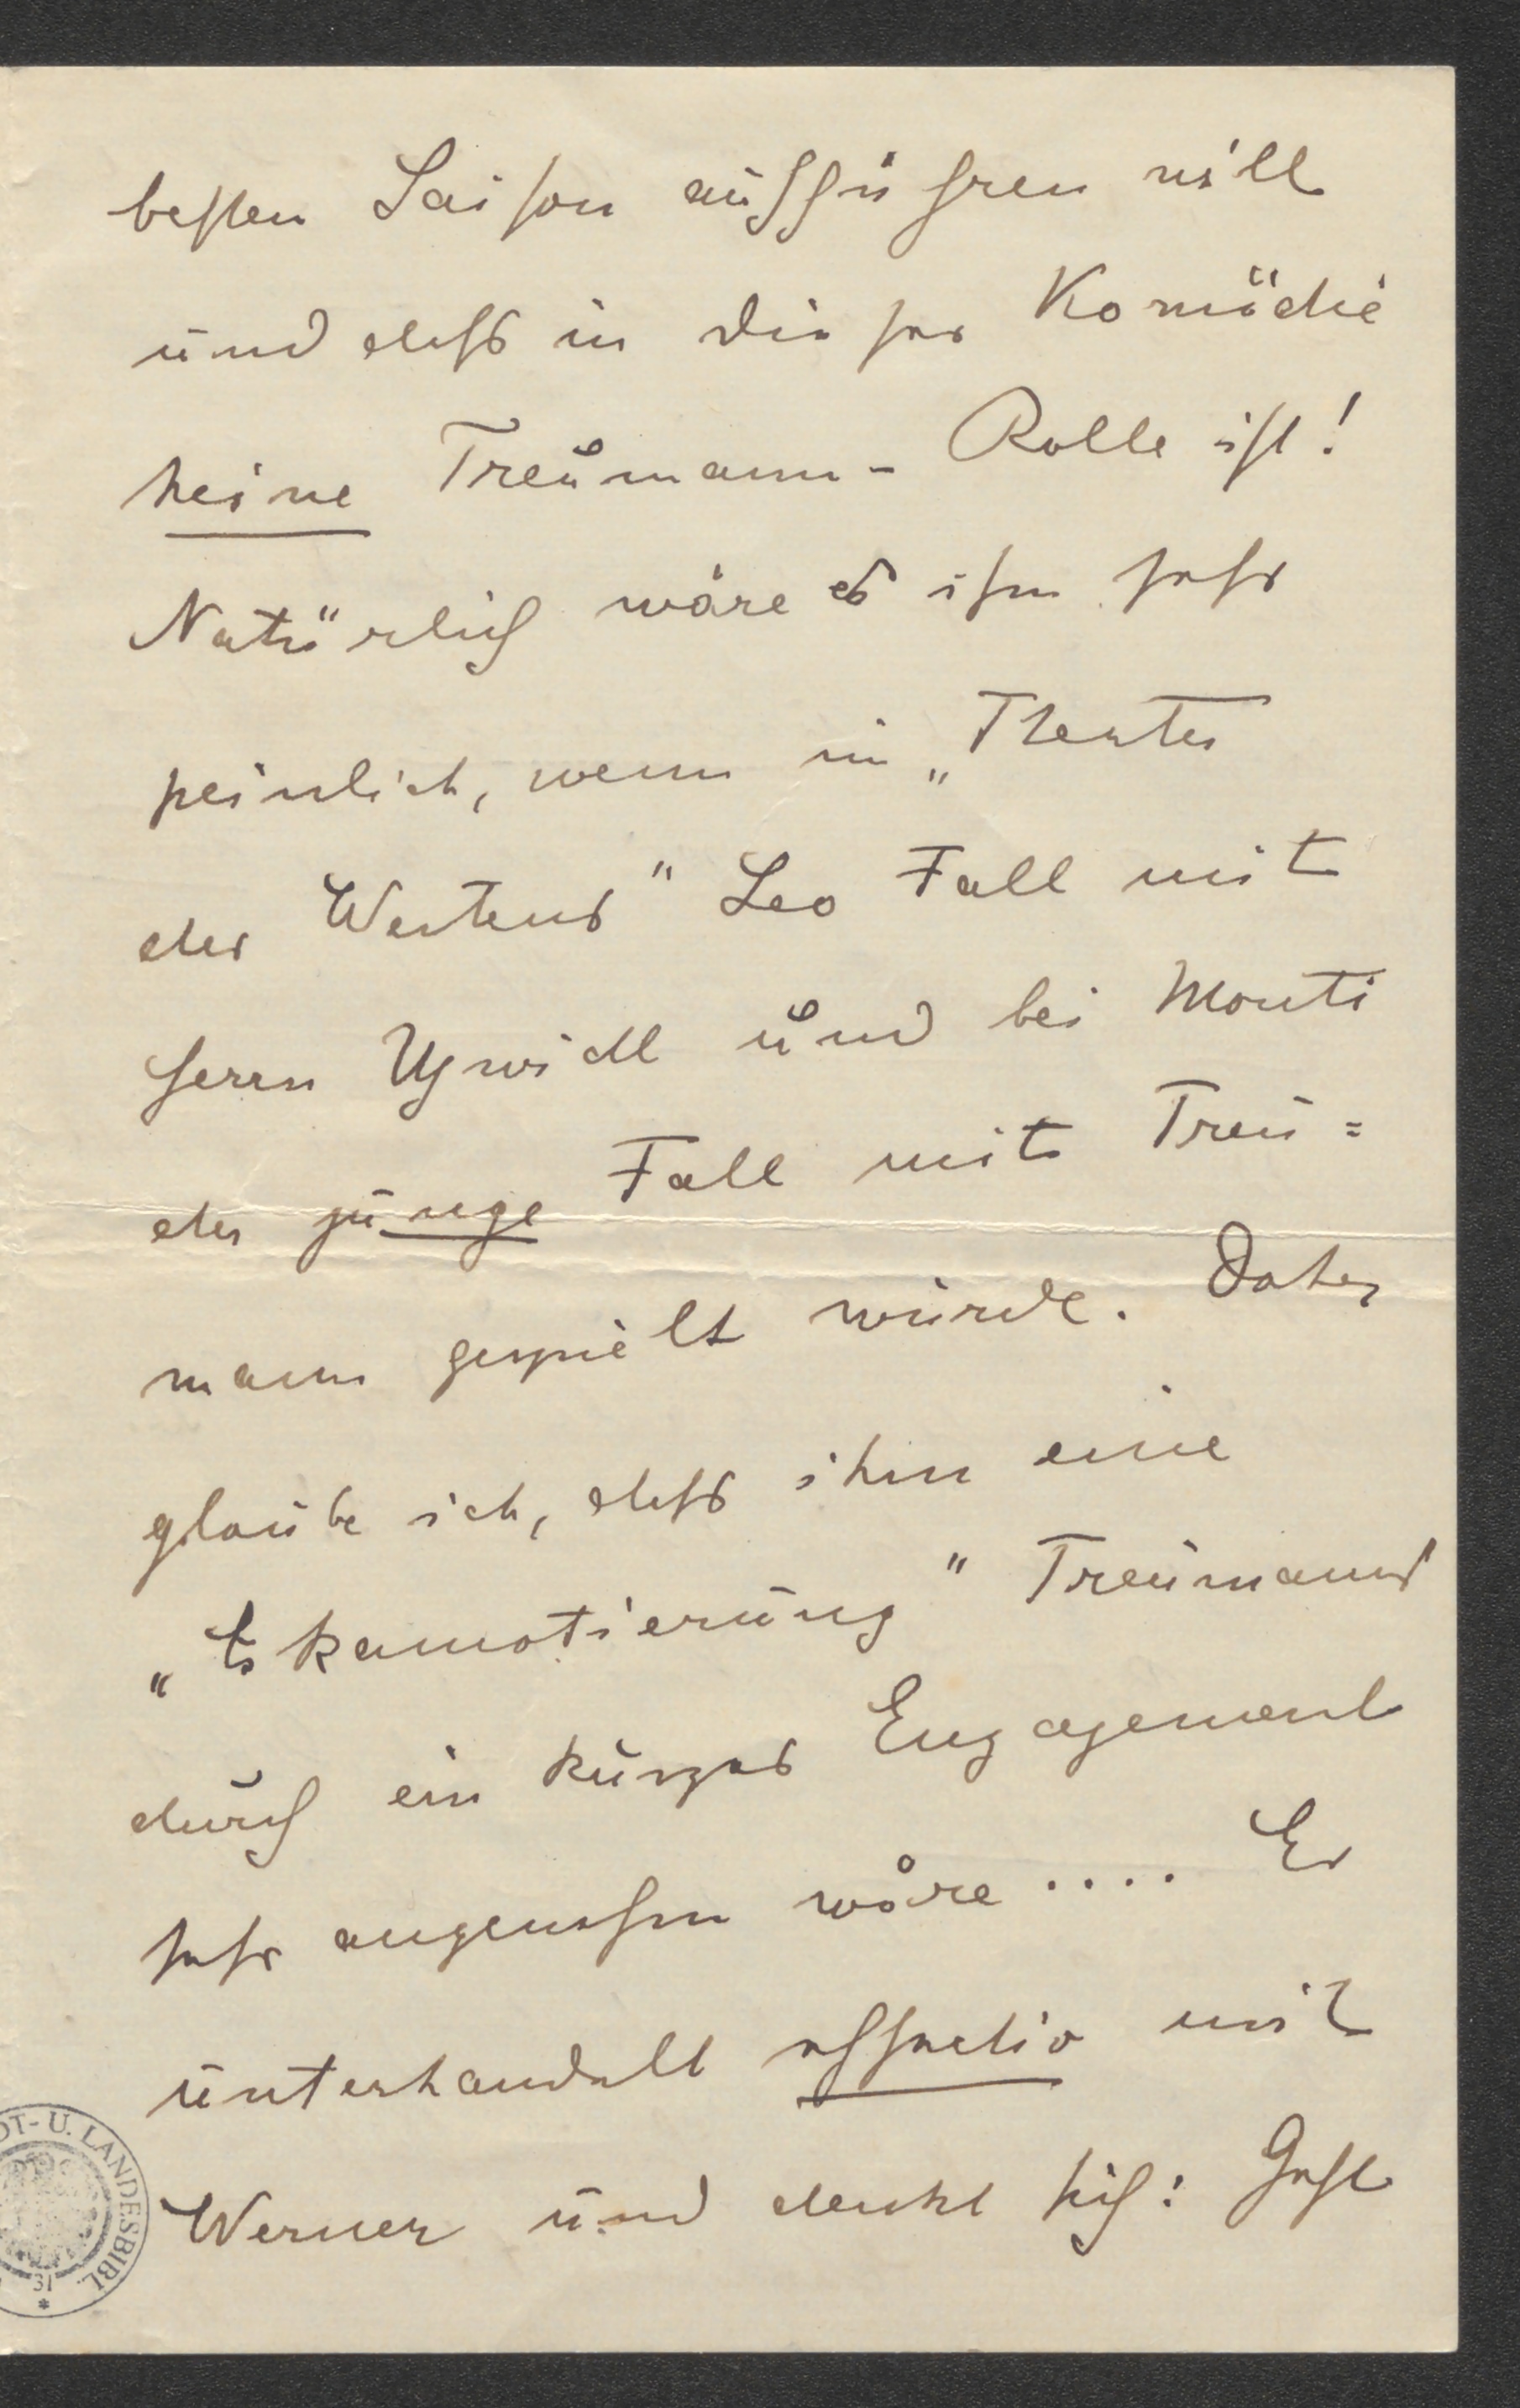 besten Saison aufführen will
und dass in dieser Komödie
keine Treumann-Rolle ist!
Natürlich wäre es ihm sehr
peinlich, wenn im „Theater
des Westens" Leo Fall mit
Herrn und bei Monti
der junge Fall mit Treu=
mann gespielt würde. Daher
glaube ich, dass ihm eine
„Eskamotierung" Treumanns
durch ein kurzes Engagement
sehr angenehm wäre .... Er
unterhandelt effectiv mit
Werner und denkt sich: Geht
DT- U. LANDESBIBL.
31